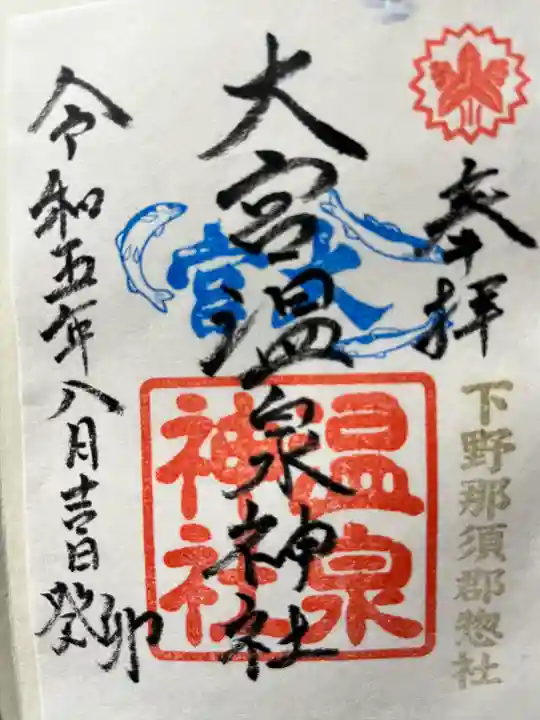 奉拝
下野那須郡惣社
大宮温泉神社
大宮
温泉
神社
令和五年八月吉日
癸卯